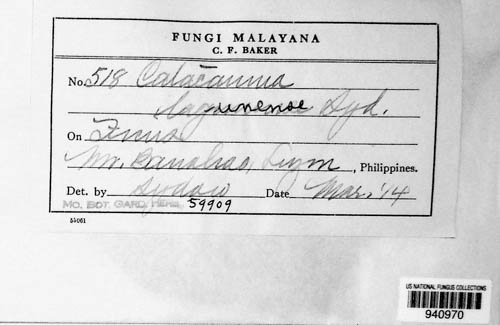 FUNGI MALAYANA
C. F. BAKER
No. 518 Catacauma
lagunense Syd.
On Ficus
Mt. Banahao, Luzon, Philippines.
Det. by Sydow Date Mar. '14
MO. BOT. GARD. HERB. 59909
55061
US NATIONAL FUNGUS COLLECTIONS
940970